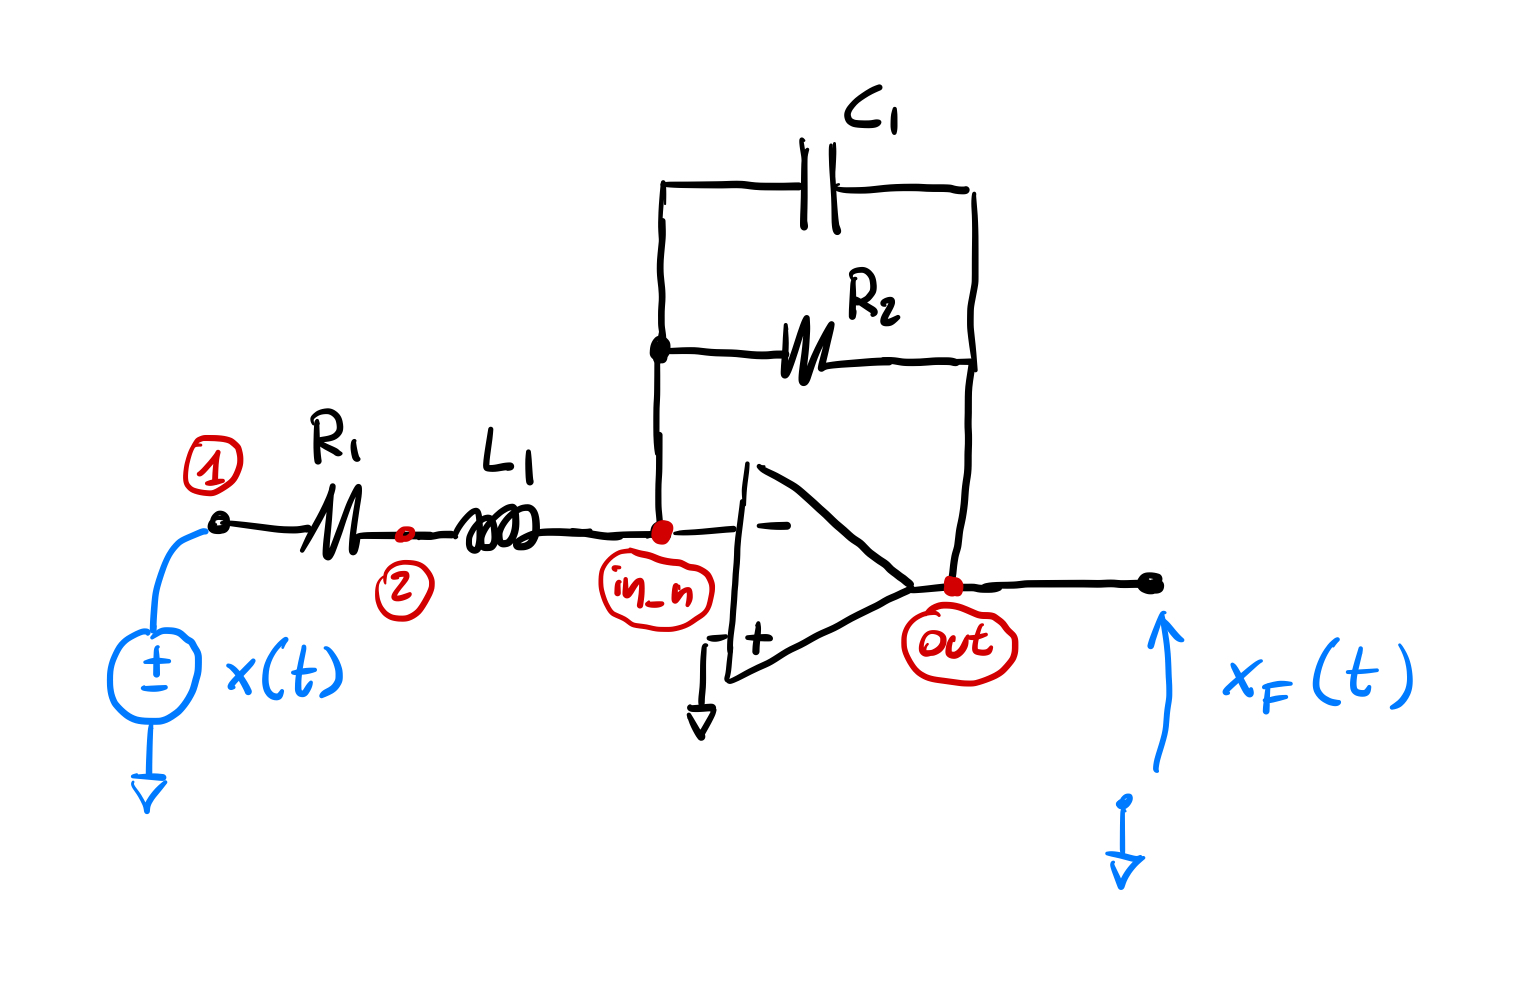 C₁
R₂
R₁
L₁
1
2
in_n
−
+
out
+
−
x(t)
x_F(t)